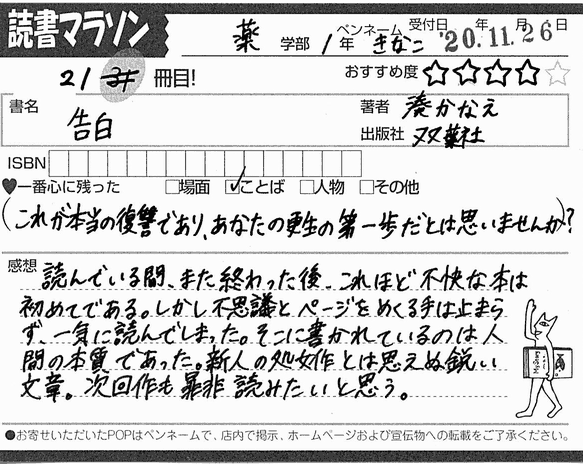 読書マラソン
薬 学部 1年 ペンネーム きなこ 受付日 '20年.11月.26日
21 冊目!
おすすめ度 ☆☆☆☆☆
書名 告白
著者 湊かなえ
出版社 双葉社
ISBN
♥一番心に残った □場面 ☑ことば □人物 □その他
(これが本当の復讐であり、あなたの更生の第一歩だとは思いませんか)?
感想 読んでいる間、また終わった後、これほど不快な本は
初めてである。しかし不思議とページをめくる手は止まら
ず、一気に読んでしまった。そこに書かれているのは人
間の本質であった。新人の処女作とは思えぬ鋭い
文章。次回作も是非読みたいと思う。
●お寄せいただいたPOPはペンネームで、店内で掲示、ホームページおよび宣伝物への転載をご了承ください。